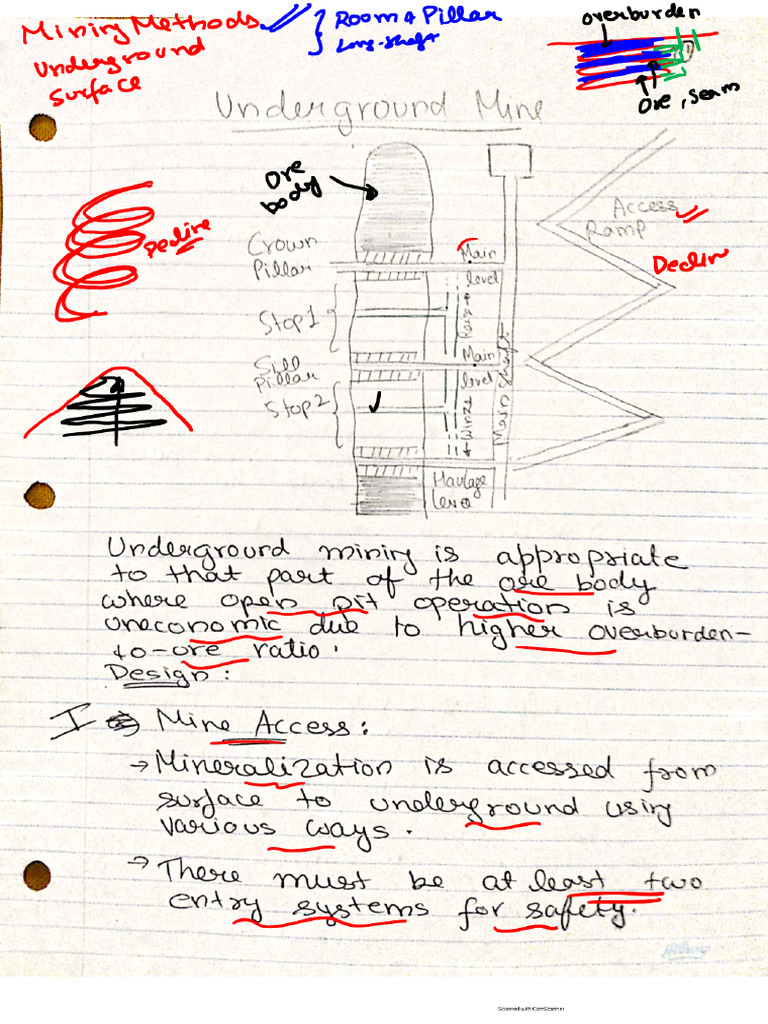 Mining Methods
Underground
Surface
Room & Pillar
Long-shaft
overburden
ore, seam
Underground Mine
Ore body
Decline
Crown Pillar
Main level
Access Ramp
Decline
Stop 1
Raise
Sill Pillar
Main level
Stop 2
Winze
Main Shaft
Haulage level
Underground mining is appropriate
to that part of the ore body
where open pit operation is
uneconomic due to higher overburden-
to-ore ratio.
Design:
I Mine Access:
→ Mineralization is accessed from
surface to underground using
various ways.
→ There must be at least two
entry systems for safety.
Scanned with CamScanner